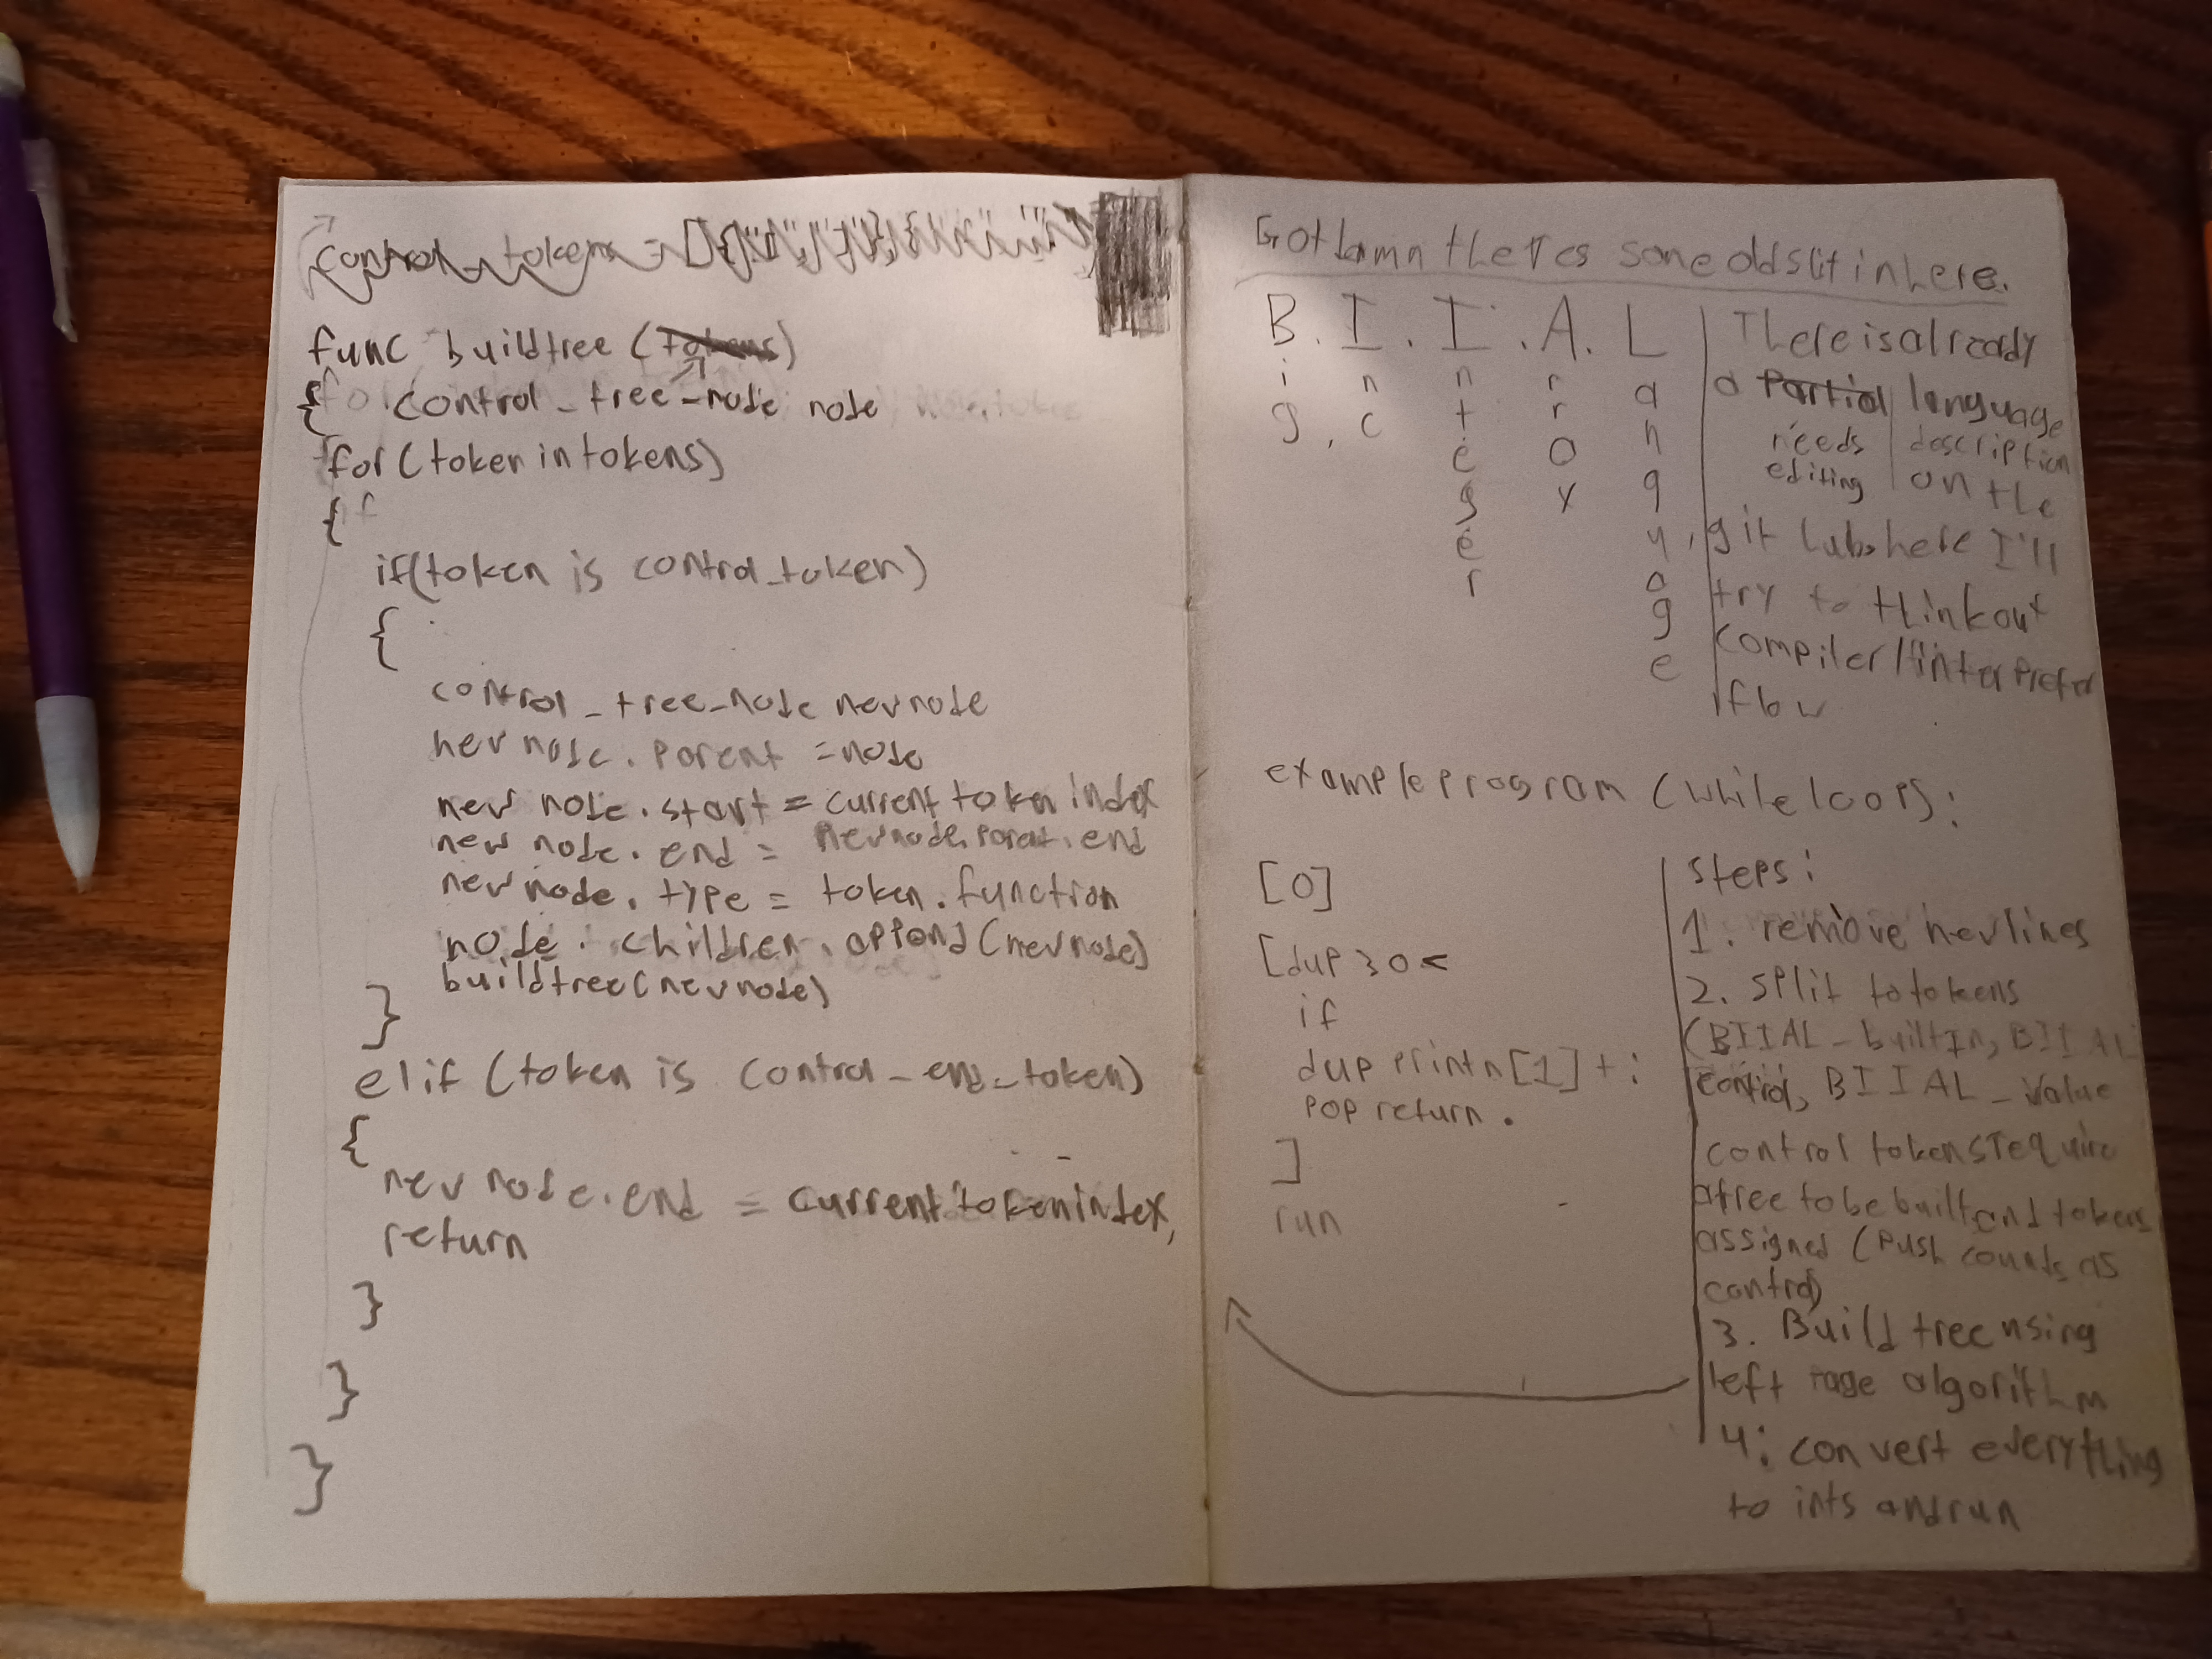 control_token = [
func buildtree (tokens)
{ control_tree_node node
for (token in tokens)
{
if (token is control_token)
{
control_tree_node newnode
newnode.parent = node
newnode.start = currenttokenindex
newnode.end = newnode.parent.end
newnode.type = token.function
node.children.append(newnode)
buildtree(newnode)
}
elif (token is control_end_token)
{
newnode.end = currenttokenindex,
return
}
}
}
Gotlamn theres someoddshit in here.
B.I.I.A.L
Big, c
In
Integer
Array
Language
There is already
a partial language
needs description
editing on the
github, here I'll
try to think out
compiler/
flow
example program (while loop):
[0]
[dup 30 <
if
dup println [1] + :
pop return .
]
run
steps:
1. remove newlines
2. split to tokens
(BIIAL_builtIn, BIIAL
control, BIIAL_Value
control tokens require
a tree to be built and tokens
assigned (push counts as
control)
3. Build tree using
left page algorithm
4. convert everything
to ints and run